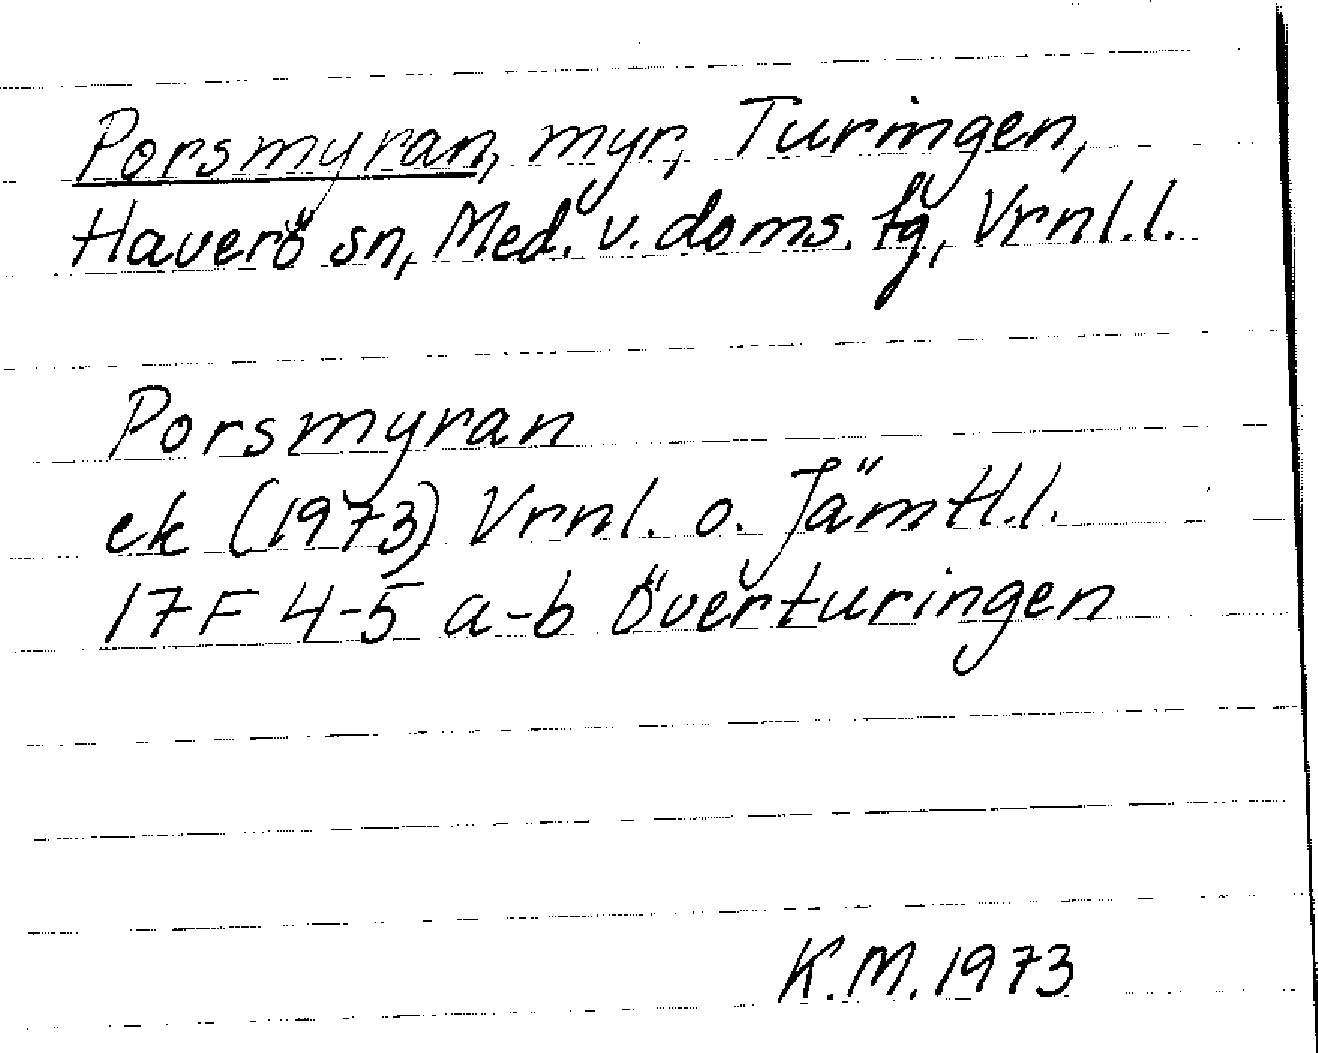 Porsmyran, myr, Turingen,
Haverö sn, Med. v. doms. tg, Vrnl.l.
Porsmyran
ek (1973) Vrnl. o. Jämtl.l.
17F 4-5 a-b Överturingen
K.M. 1973